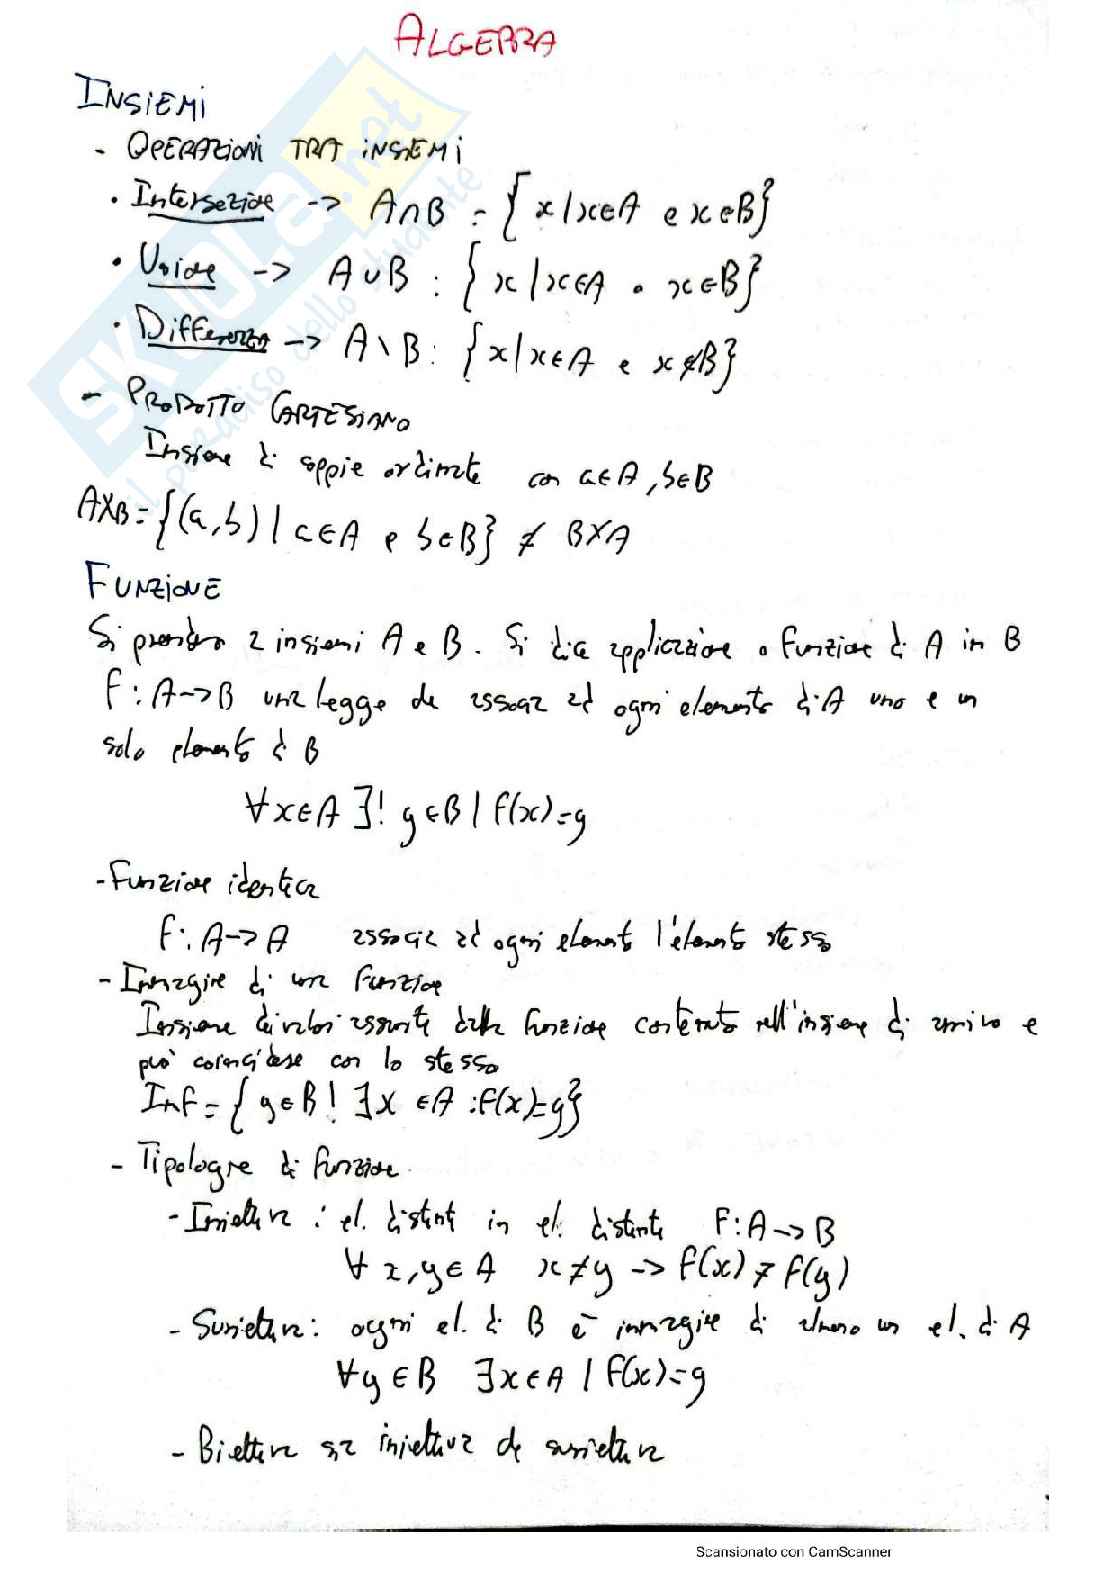 ALGEBRA
INSIEMI
- OPERAZIONI TRA INSIEMI
• Intersezione -> A∩B = { x | x∈A e x∈B}
• Unione -> A∪B : { x | x∈A o x∈B}
• Differenza -> A \ B : { x | x∈A e x∉B}
- PRODOTTO CARTESIANO
Insieme di coppie ordinate con a∈A, b∈B
AXB = {(a,b) | a∈A e b∈B} ≠ BXA
FUNZIONE
Si prendono 2 insiemi A e B. Si dice applicazione o funzione di A in B
F: A->B una legge che associa ad ogni elemento di A uno e un
solo elemento di B
∀x∈A ∃! y∈B | f(x)=y
- Funzione identica
F: A->A associa ad ogni elemento l'elemento stesso
- Immagine di una funzione
Insieme di valori assunti dalla funzione contenuto nell'insieme di arrivo e
può coincidere con lo stesso
Imf = { y∈B ! ∃x ∈A : f(x)=y}
- Tipologie di funzione
- Iniettiva : el. distinti in el. distinti F: A->B
∀ x,y∈A x≠y -> f(x) ≠ f(y)
- Suriettiva: ogni el. di B è immagine di almeno un el. di A
∀y∈B ∃x∈A | f(x)=y
- Biettiva sia iniettiva che suriettiva
SKUOLA.net
il paradiso dello studente
Scansionato con CamScanner